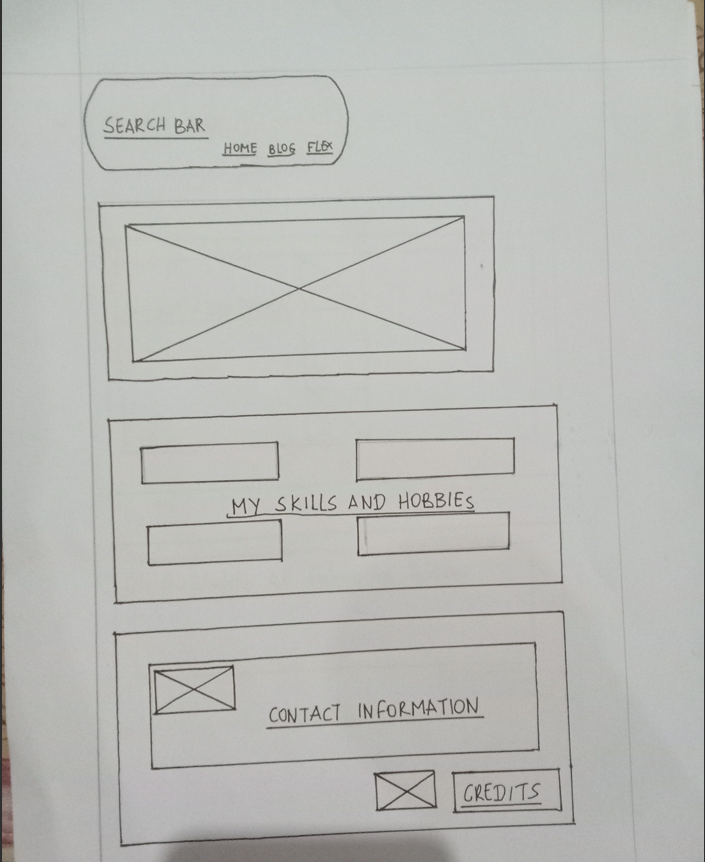 SEARCH BAR
HOME BLOG FLEX
MY SKILLS AND HOBBIES
CONTACT INFORMATION
CREDITS